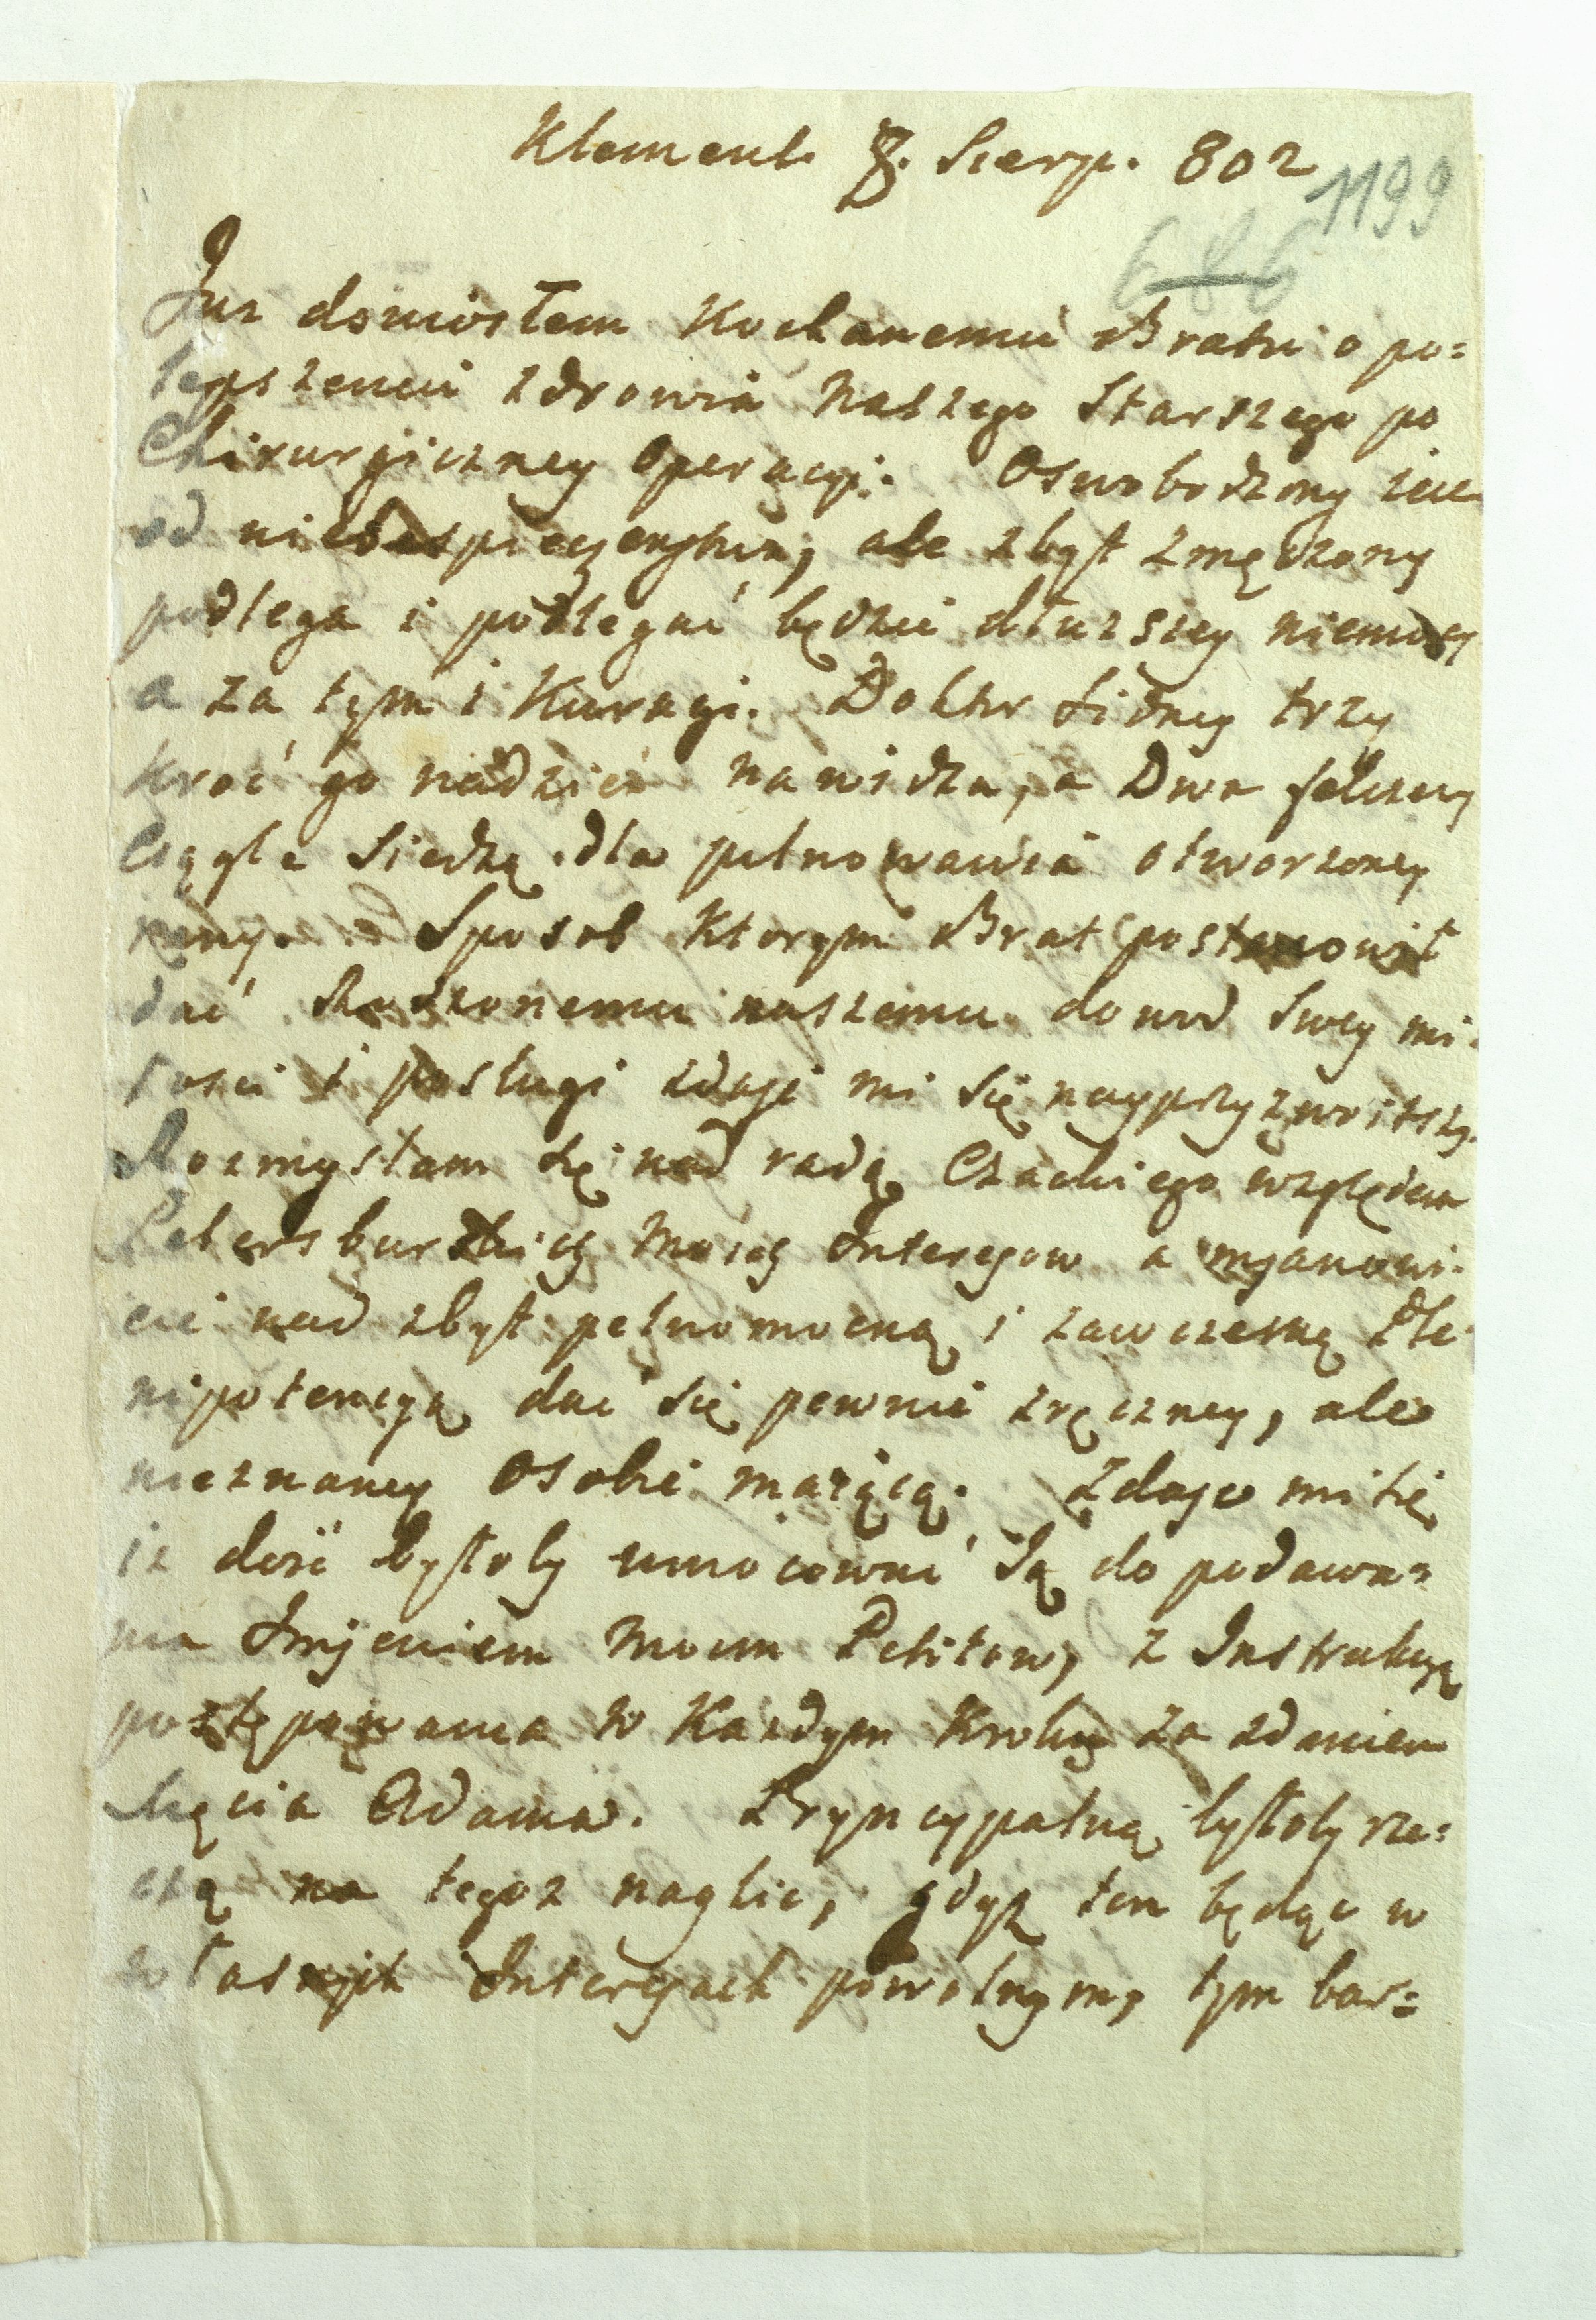 Klement. 8. Sierp. 802
1199
686
Juz doniosłem Kochanemu Bratu o po=
lepszeniu zdrowia Naszego Starszego po
Chirurgiczney Operacyi. Oswobodzony iest
od niebespieczenstwa, ale zbyt zmęczony
podlega i podlegać będzie dłuzszey niemocy
a za tym i Kuracyi. Doktor Sidney trzy
kroć go nadzień nawidza, a Dwa felczery
Ciągle siedzą dla pilnowania otworzoney
rany. Sposob Ktorym Brat postanowił
dać Starszemu naszemu dowod Swey mi=
łosci i posługi zdaje mi Się nayprzyzwoitszy.
Rozmyslam Się nad radą Czackiego względem
Petersburskich moich Interesow a mianowi=
cie nad zbyt pełnomocną i zawczesną Ple=
nipotencyą dać Się pewnie zręczney, ale
nieznaney Osobie maiącą. Zdaje mi Się
iz dość byłoby umocować Ją do podawa=
nia Imieniem moim Petitow, z Instrukcyą
postępowania w Kazdym Kroku za zdaniem
Xięcia Adama. Pryncypalną byłoby rze=
czą na tegoz naglić, gdyz ten będąc w
własnych Interesach powolnym, tym bar=